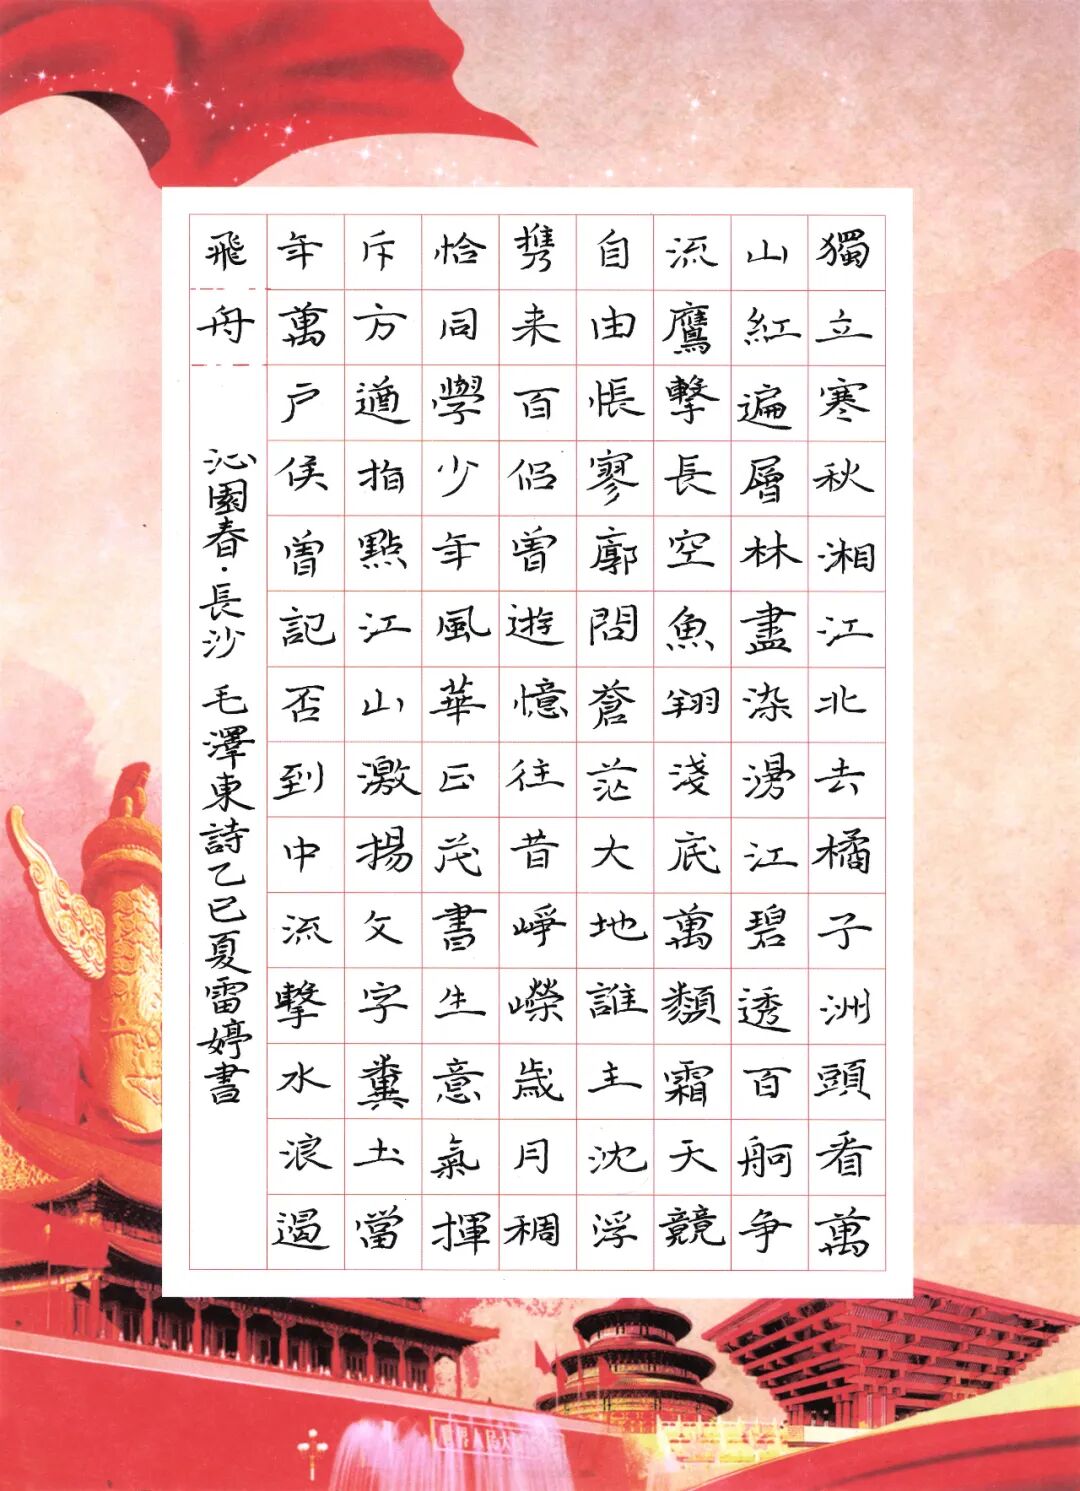 獨立寒秋湘江北去橘子洲頭看萬
山紅遍層林盡染漫江碧透百舸争
流鷹擊長空魚翔淺底萬類霜天競
自由悵寥廓問蒼茫大地誰主沈浮
携来百侣曾遊憶往昔崢嶸歲月稠
恰同學少年風華正茂書生意氣揮
斥方遒指點江山激揚文字糞土當
年萬户侯曾記否到中流擊水浪遏
飛舟
沁園春·長沙 毛澤東詩乙巳夏雷婷書